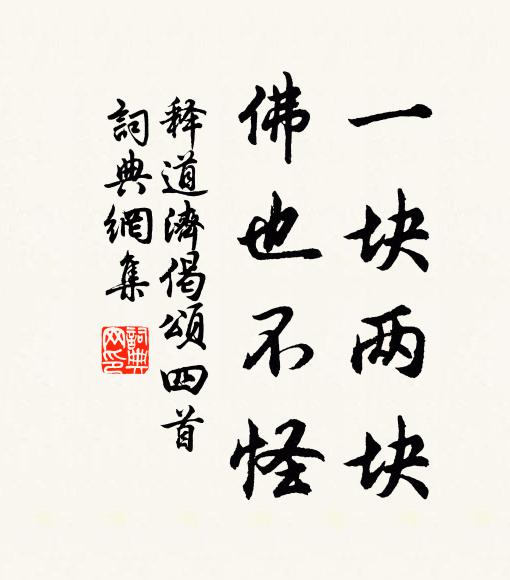 一块两块
佛也不怪
释道濟偈頌四首
詞典網集
詞典网印